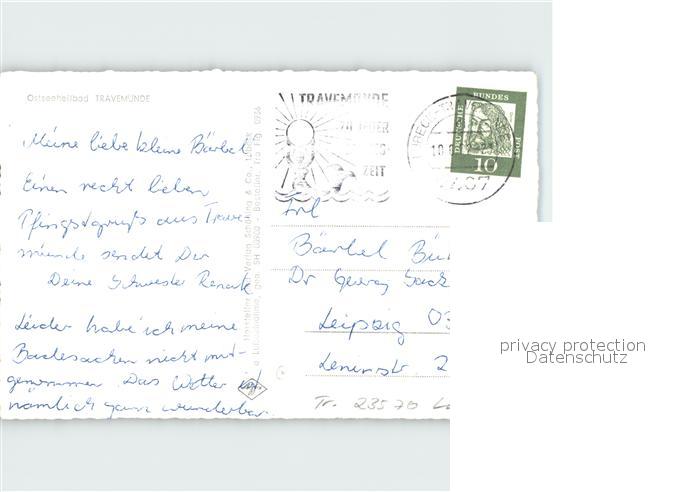 Ostseeheilbad TRAVEMÜNDE
TRAVEMÜNDE
ZU JEDER
ZEIT
DEUTSCHE BUNDESPOST
10
Meine liebe kleine Bärbel
Einen recht lieben
Pfingstgruß aus Trave-
münde sendet Dir
Deine Schwester Renate
Leider habe ich meine
Badesachen nicht mit-
genommen. Das Wetter ist
nämlich ganz wunderbar.
Frl
Bärbel
Dr Georg
Leipzig 03
Leninstr 2
Tr. 23570
privacy protection
Datenschutz